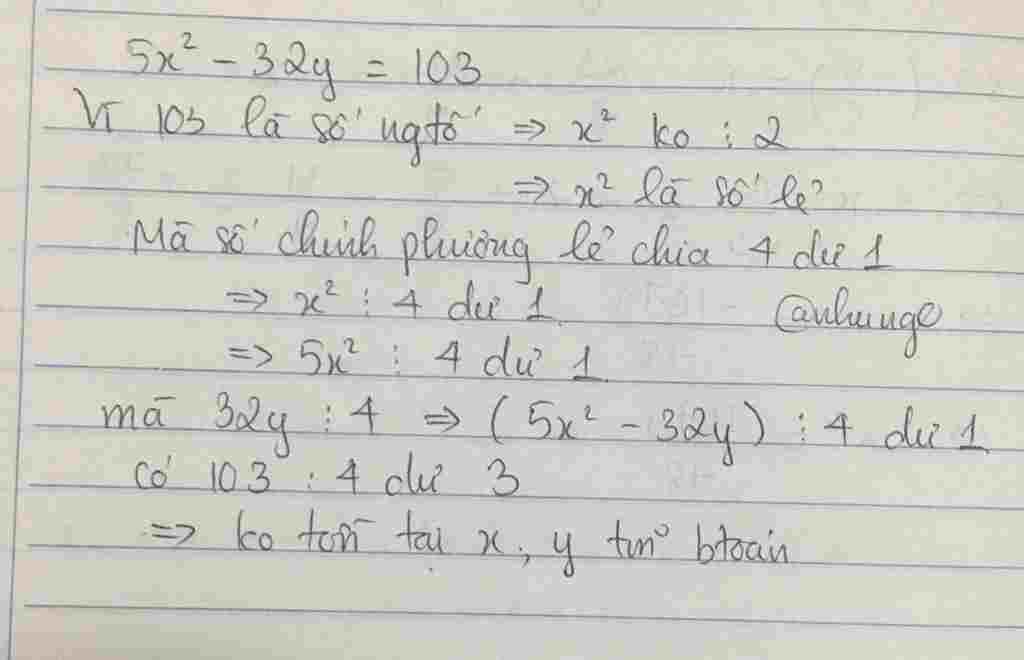 5x² - 32y = 103
Vì 103 là số ngtố ⇒ x² ko ⋮ 2
⇒ x² là số lẻ
Mà số chính phương lẻ chia 4 dư 1
⇒ x² : 4 dư 1
@nhunge
⇒ 5x² : 4 dư 1
mà 32y ⋮ 4 ⇒ (5x² - 32y) : 4 dư 1
có 103 : 4 dư 3
⇒ ko tồn tại x, y tm btoán